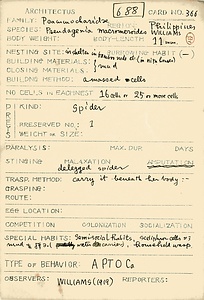 ARCHITECTUS 688 CARD NO. 366
FAMILY: Pommacharidae REGION: Philippines
SPECIES: Pseudagenia macromerioides WILLIAMS
BODY WEIGHT: BODY-LENGTH 11 mm.
NESTING SITE: SURROUNDING HABITAT (-)
BUILDING MATERIALS: } mud
CLOSING MATERIALS:
BUILDING METHOD: amassed cells
NO. CELLS IN EACH NEST 16 cells or 25 or more cells
PREY KIND: spider
PRESERVED NO.: 1
WEIGHT or SIZE:
PARALYSIS: MAX. DUR
STINGING MALAXATION AMPUTATION
delegged spider
TRANSP. METHOD: carry it beneath her body :-
GRASPING:
ROUTE:
EGG LOCATION:
COMPETITION COLONIZATION SOCIALIZATION
SPECIAL HABITS: Semisocial habits,
mud water carried,
TYPE OF BEHAVIOR: APTOCa
OBSERVERS: WILLIAMS (1919) REPORTERS: